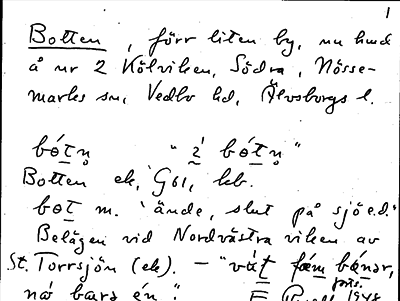 1
Botten, förr liten by, nu hmd
å nr 2 Kölviken, Södra, Nösse-
marks sn, Vedbo hd, Älvsborgs l.
bótn̥ "i bótn̥"
Botten ek, G61, kb.
bot m. 'ände, slut på sjö e.d.'
Belägen vid Nordvästra viken av
St. Torrsjön (ek). — "vát
nó bara én".
1948